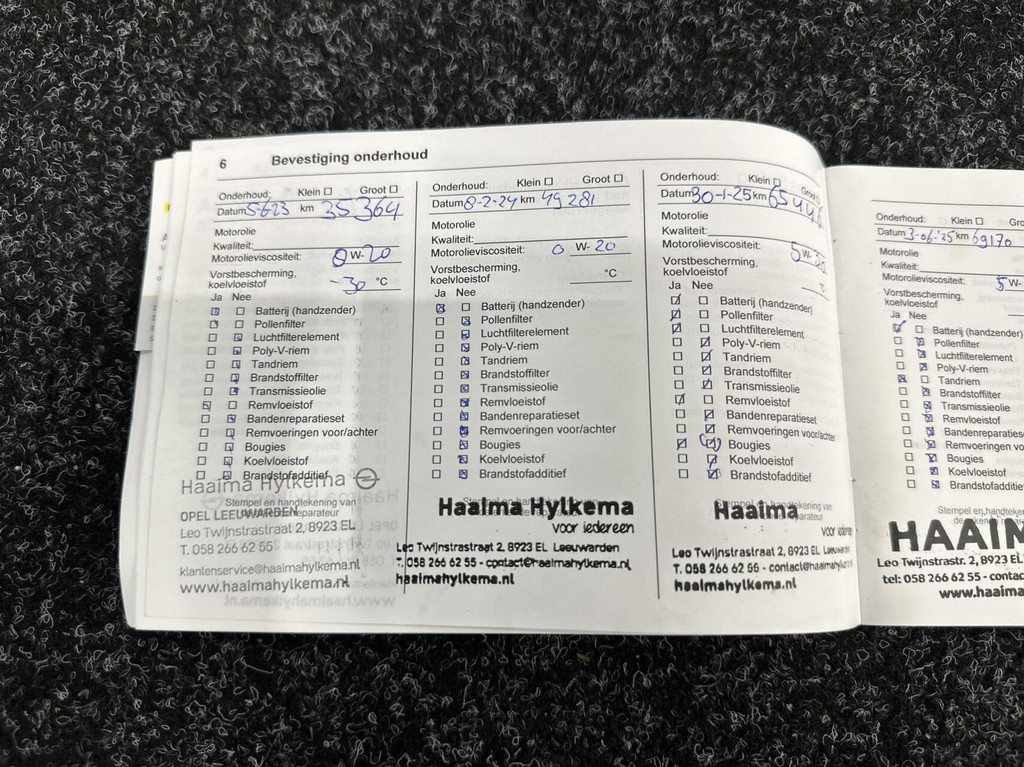 6 Bevestiging onderhoud
Onderhoud: Klein Groot
Datum 5-6-23 km 35 364
Motorolie
Kwaliteit:
Motorolieviscositeit: 0 W- 20
Vorstbescherming,
koelvloeistof -30 °C
Ja Nee
Batterij (handzender)
Pollenfilter
Luchtfilterelement
Poly-V-riem
Tandriem
Brandstoffilter
Transmissieolie
Remvloeistof
Bandenreparatieset
Remvoeringen voor/achter
Bougies
Koelvloeistof
Brandstofadditief
Haaima Hylkema
Stempel en handtekening van
OPEL LEEUWARDEN reparateur
Leo Twijnstrastraat 2, 8923 EL
T. 058 266 62 55
klantenservice@haaimahylkema.nl
www.haaimahylkema.nl
Onderhoud: Klein Groot
Datum 8-2-24 km 49 281
Motorolie
Kwaliteit:
Motorolieviscositeit: 0 W- 20
Vorstbescherming,
koelvloeistof °C
Ja Nee
Batterij (handzender)
Pollenfilter
Luchtfilterelement
Poly-V-riem
Tandriem
Brandstoffilter
Transmissieolie
Remvloeistof
Bandenreparatieset
Remvoeringen voor/achter
Bougies
Koelvloeistof
Brandstofadditief
Haaima Hylkema
voor iedereen
Leo Twijnstrastraat 2, 8923 EL Leeuwarden
T. 058 266 62 55 - contact@haaimahylkema.nl
haaimahylkema.nl
Onderhoud: Klein Groot
Datum 30-1-25 km
Motorolie
Kwaliteit:
Motorolieviscositeit: 5 W- 30
Vorstbescherming,
koelvloeistof °C
Ja Nee
Batterij (handzender)
Pollenfilter
Luchtfilterelement
Poly-V-riem
Tandriem
Brandstoffilter
Transmissieolie
Remvloeistof
Bandenreparatieset
Remvoeringen voor/achter
Bougies
Koelvloeistof
Brandstofadditief
Stempel en handtekening van
Haaima reparateur
voor
Leo Twijnstrastraat 2, 8923 EL
T. 058 266 62 55 - contact@haaimahylkema
haaimahylkema.nl
Onderhoud: Klein
Datum 3-06-'25 km 69170
Motorolie
Kwaliteit:
Motorolieviscositeit: 5 W-
Vorstbescherming,
koelvloeistof
Ja Nee
Batterij (handzender)
Pollenfilter
Luchtfilterelement
Poly-V-riem
Tandriem
Brandstoffilter
Transmissieolie
Remvloeistof
Bandenreparaties
Remvoeringen vo
Bougies
Koelvloeistof
Brandstofadditie
Stempel en handtekening
HAAIM
Leo Twijnstrastr. 2, 8923 EL
tel: 058 266 62 55 - contac
www.haaima